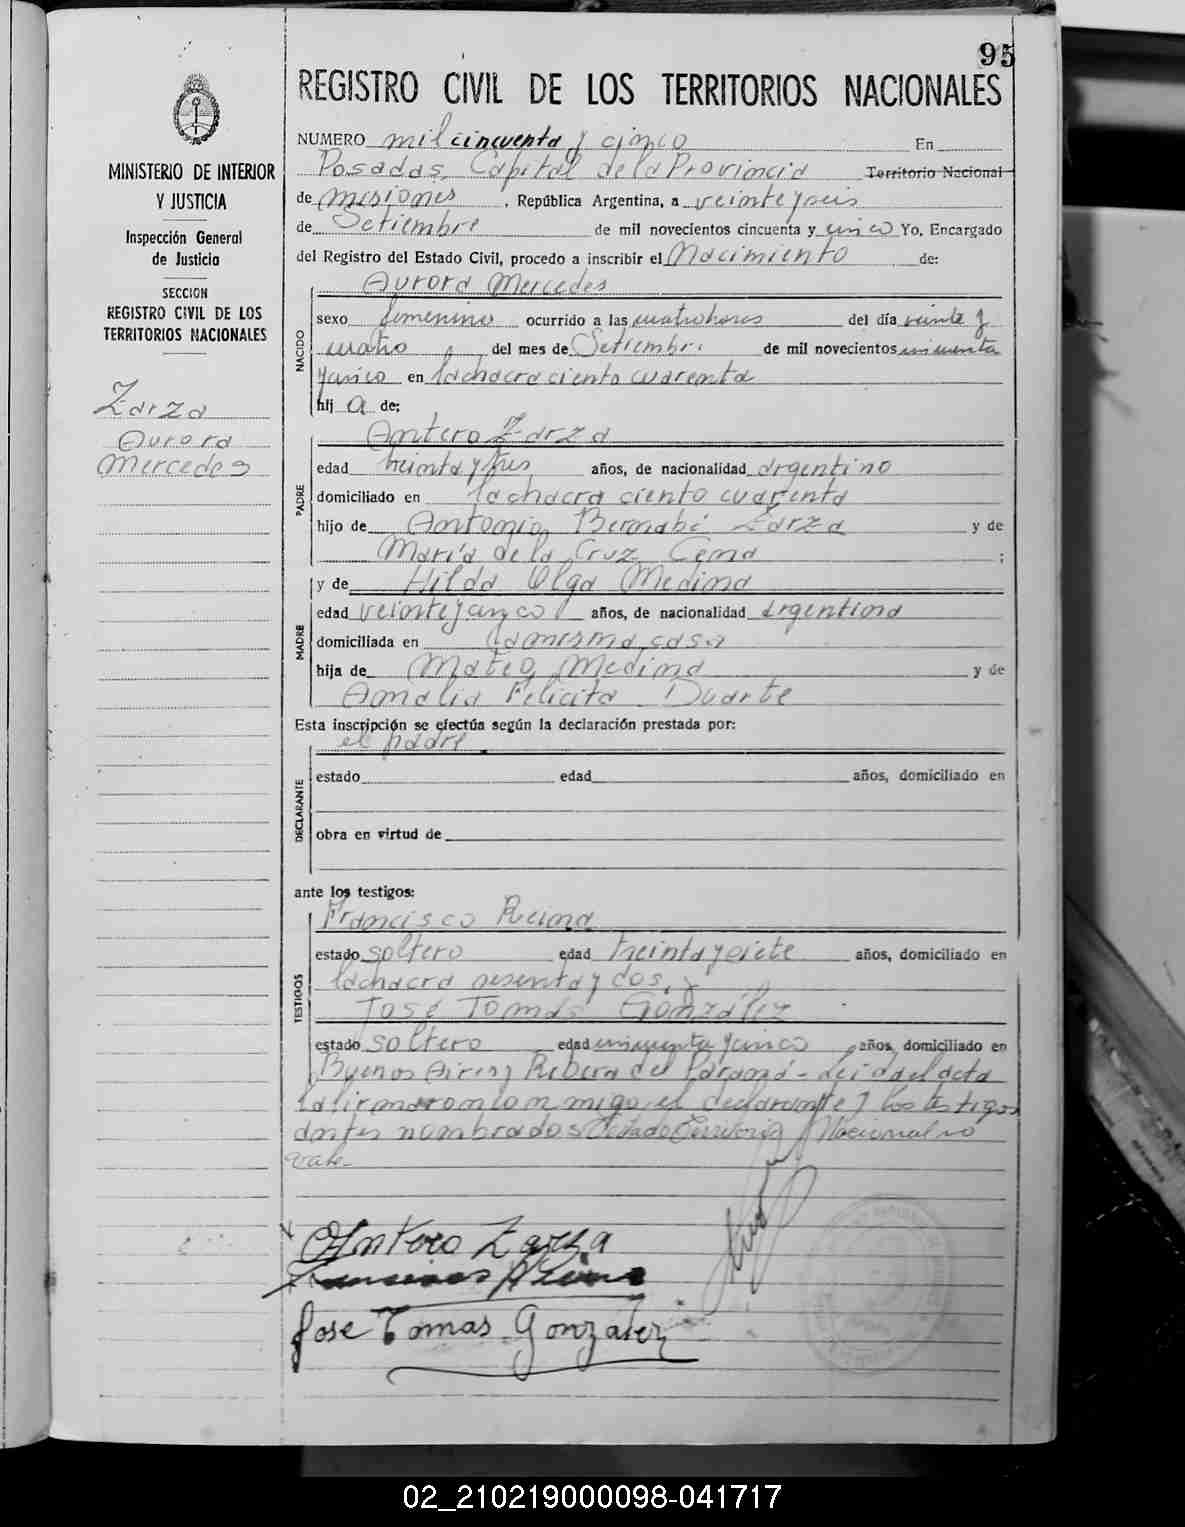 95
REGISTRO CIVIL DE LOS TERRITORIOS NACIONALES
MINISTERIO DE INTERIOR
Y JUSTICIA
Inspección General
de Justicia
SECCION
REGISTRO CIVIL DE LOS
TERRITORIOS NACIONALES
Zarza
Aurora
Mercedes
NUMERO mil cincuenta y cinco En
Posadas, Capital de la Provincia Territorio Nacional
de Misiones, República Argentina, a veinte y seis
de Setiembre de mil novecientos cincuenta y cinco Yo, Encargado
del Registro del Estado Civil, procedo a inscribir el Nacimiento de:
Aurora Mercedes
NACIDO
sexo femenino ocurrido a las cuatro horas del día veinte y
cuatro del mes de Setiembre de mil novecientos cincuenta
y cinco en la chacra ciento cuarenta
hij a de:
Antero Zarza
PADRE
edad treinta y tres años, de nacionalidad argentino
domiciliado en la chacra ciento cuarenta
hijo de Antonio Bernabé Zarza y de
María de la Cruz ;
y de Hilda Olga Medina
MADRE
edad veinte y cinco años, de nacionalidad argentina
domiciliada en la misma casa
hija de Mateo Medina y de
Amalia Felicita Duarte
Esta inscripción se efectúa según la declaración prestada por:
el padre.
DECLARANTE
estado edad años, domiciliado en
obra en virtud de
ante los testigos:
Francisco Reina
TESTIGOS
estado soltero edad treinta y siete años, domiciliado en
la chacra sesenta y dos, y
José Tomás González
estado soltero edad cincuenta y cinco años, domiciliado en
Buenos Aires y Ribera del Paraná - Leida el acta
la firmaron conmigo, el declarante y los testigos
antes nombrados Testado Territorio Nacional no
vale-
Antero Zarza
Jose Tomas Gonzalez
02_210219000098-041717